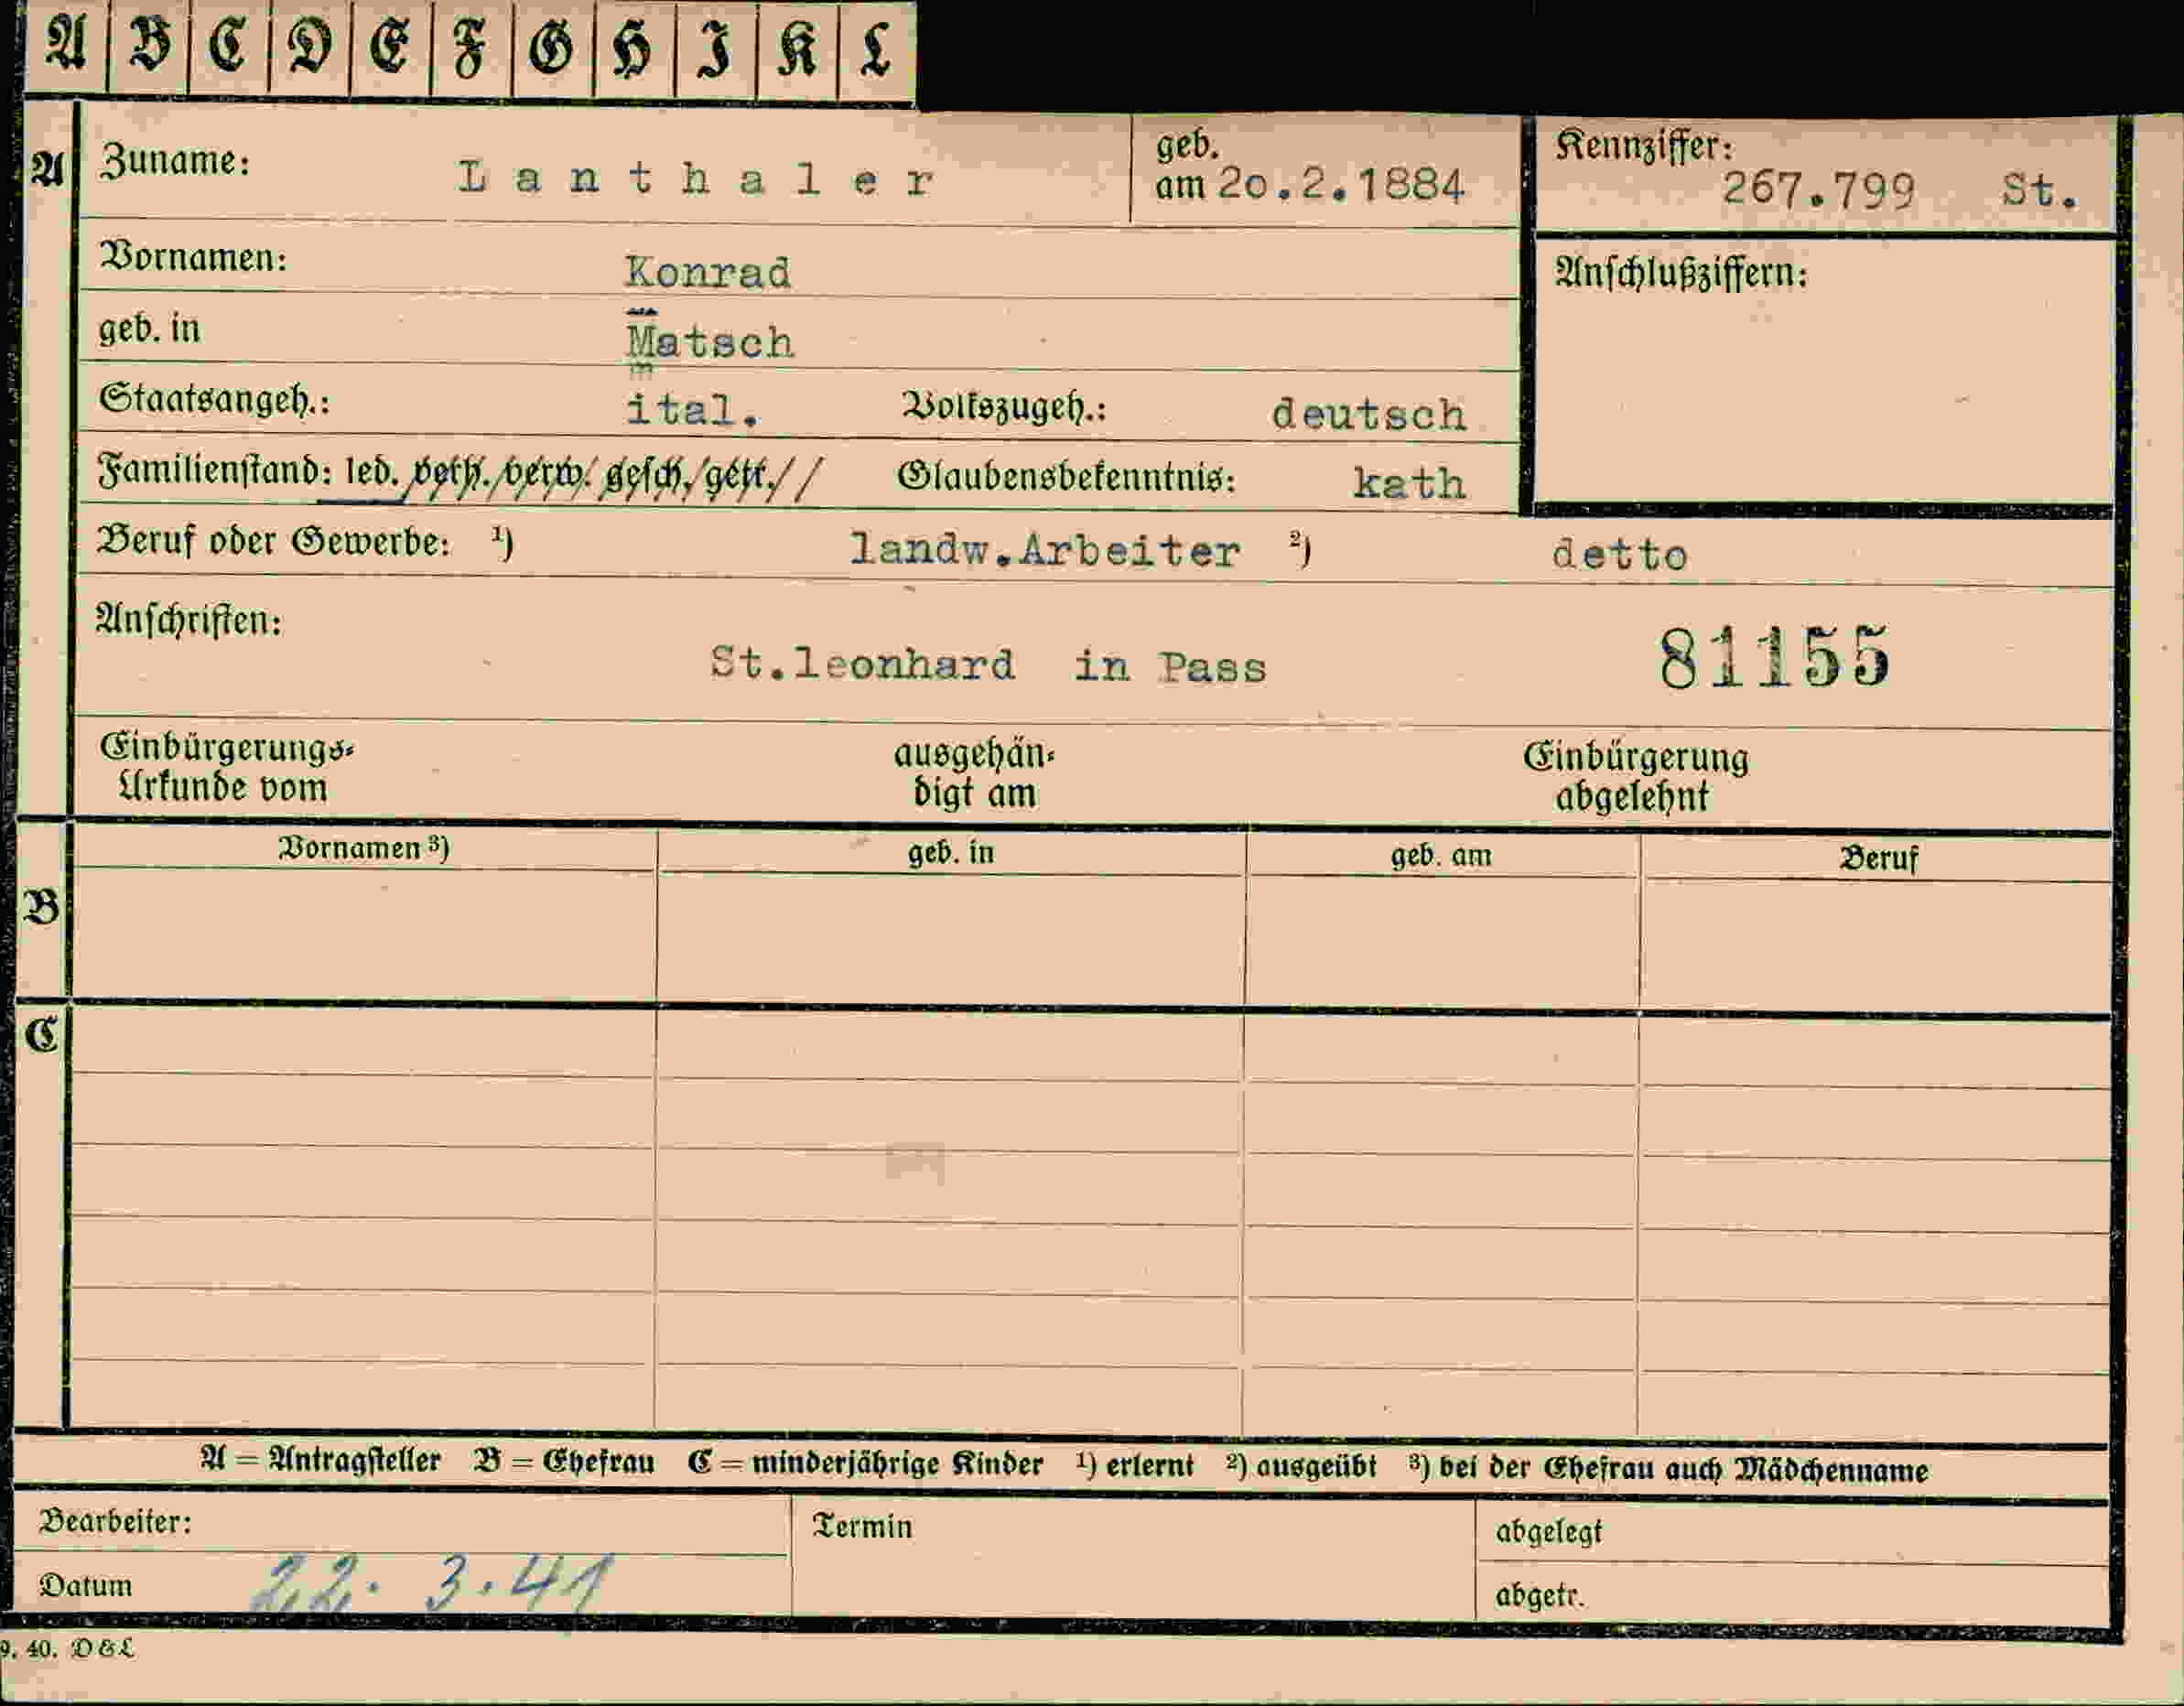 A B C D E F G H I K L
A Zuname: Lanthaler geb. am 20.2.1884 Kennziffer: 267.799 St.
Vornamen: Konrad Anschlußziffern:
geb. in Matsch
Staatsangeh.: ital. Volkszugeh.: deutsch
Familienstand: led. verh. verw. gesch. getr. Glaubensbekenntnis: kath
Beruf oder Gewerbe: ¹) landw.Arbeiter ²) detto
Anschriften:
St.leonhard in Pass 81155
Einbürgerungs- ausgehän- Einbürgerung
Urkunde vom digt am abgelehnt
Vornamen ³) geb. in geb. am Beruf
B
C
A = Antragsteller B = Ehefrau C = minderjährige Kinder ¹) erlernt ²) ausgeübt ³) bei der Ehefrau auch Mädchenname
Bearbeiter: Termin abgelegt
Datum 22. 3.41 abgetr.
9. 40. D & L